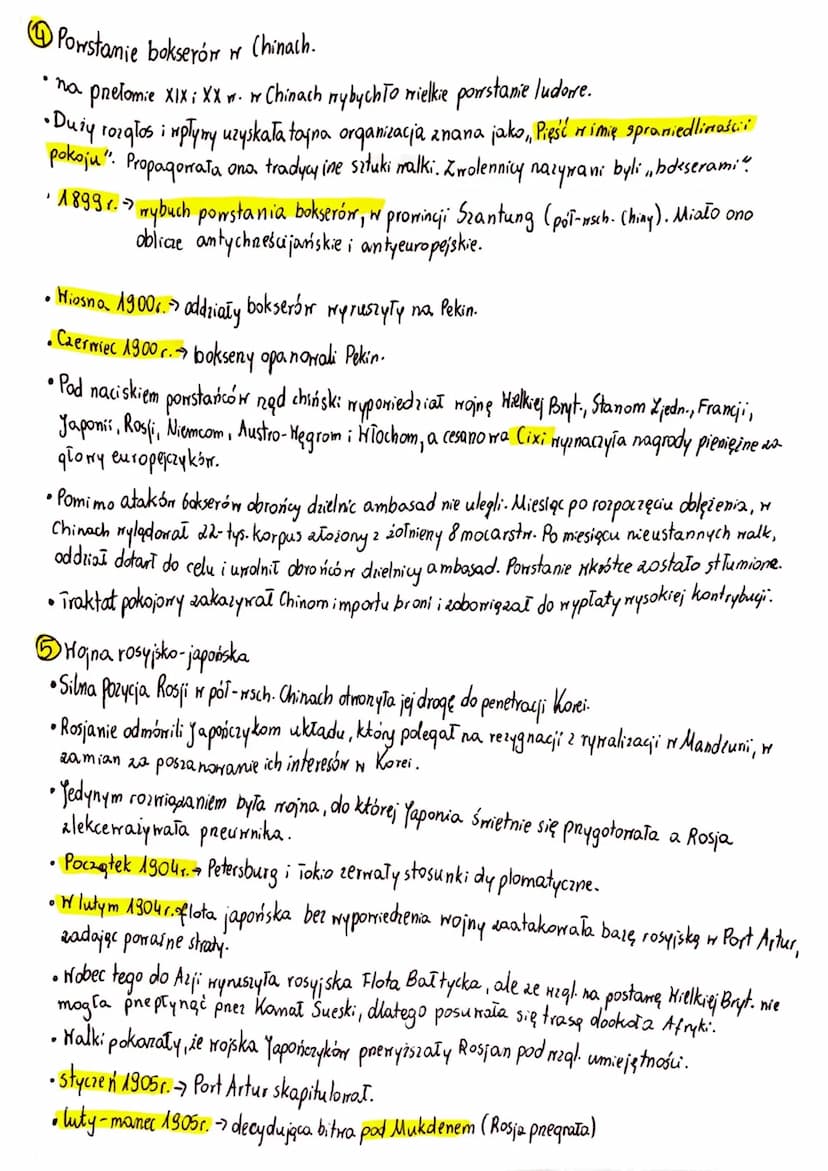 4 Powstanie bokserów w Chinach.
• na przełomie XIX i XX w. w Chinach wybychło wielkie powstanie ludowe.
• Duży rozgłos i wpływy uzyskała tajna organizacja znana jako „Pięść w imię sprawiedliwości i
pokoju". Propagowała ona tradycyjne sztuki walki. Zwolennicy nazywani byli „bokserami".
• 1899 r. → wybuch powstania bokserów, w prowincji Szantung (pół-wsch. Chiny). Miało ono
oblicze antychrześcijańskie i antyeuropejskie.
• Wiosna 1900r. → oddziały bokserów wyruszyły na Pekin.
• Czerwiec 1900 r. → bokserzy opanowali Pekin.
• Pod naciskiem powstańców rząd chiński wypowiedział wojnę Wielkiej Bryt., Stanom Zjedn., Francji,
Japonii, Rosji, Niemcom, Austro-Węgrom i Włochom, a cesarzowa Cixi wyznaczyła nagrody pieniężne za
głowy europejczyków.
• Pomimo ataków bokserów obrońcy dzielnic ambasad nie ulegli. Miesiąc po rozpoczęciu oblężenia, w
Chinach wylądował 22-tys. korpus złożony z żołnierzy 8 mocarstw. Po miesiącu nieustannych walk,
oddział dotarł do celu i uwolnił obrońców dzielnicy ambasad. Powstanie wkrótce zostało stłumione.
• Traktat pokojowy zakazywał Chinom importu broni i zobowiązał do wypłaty wysokiej kontrybucji.
5 Wojna rosyjsko-japońska
• Silna pozycja Rosji w pół-wsch. Chinach otworzyła jej drogę do penetracji Korei.
• Rosjanie odmówili Japończykom układu, który polegał na rezygnacji z rywalizacji w Mandżurii, w
zamian za poszanowanie ich interesów w Korei.
• Jedynym rozwiązaniem była wojna, do której Japonia świetnie się przygotowała a Rosja
zlekceważywała przeciwnika.
• Początek 1904r. → Petersburg i Tokio zerwały stosunki dyplomatyczne.
• W lutym 1904 r. flota japońska bez wypowiedzenia wojny zaatakowała bazę rosyjską w Port Artur,
zadając poważne straty.
• Wobec tego do Azji wyruszyła rosyjska Flota Bałtycka, ale ze wzgl. na postawę Wielkiej Bryt. nie
mogła przepłynąć przez Kanał Sueski, dlatego posuwała się trasą dookoła Afryki.
• Walki pokazały, że wojska Japończyków przewyższały Rosjan pod wzgl. umiejętności.
• styczeń 1905r. → Port Artur skapitulował.
• luty-marzec 1905r. → decydująca bitwa pod Mukdenem (Rosja przegrała)